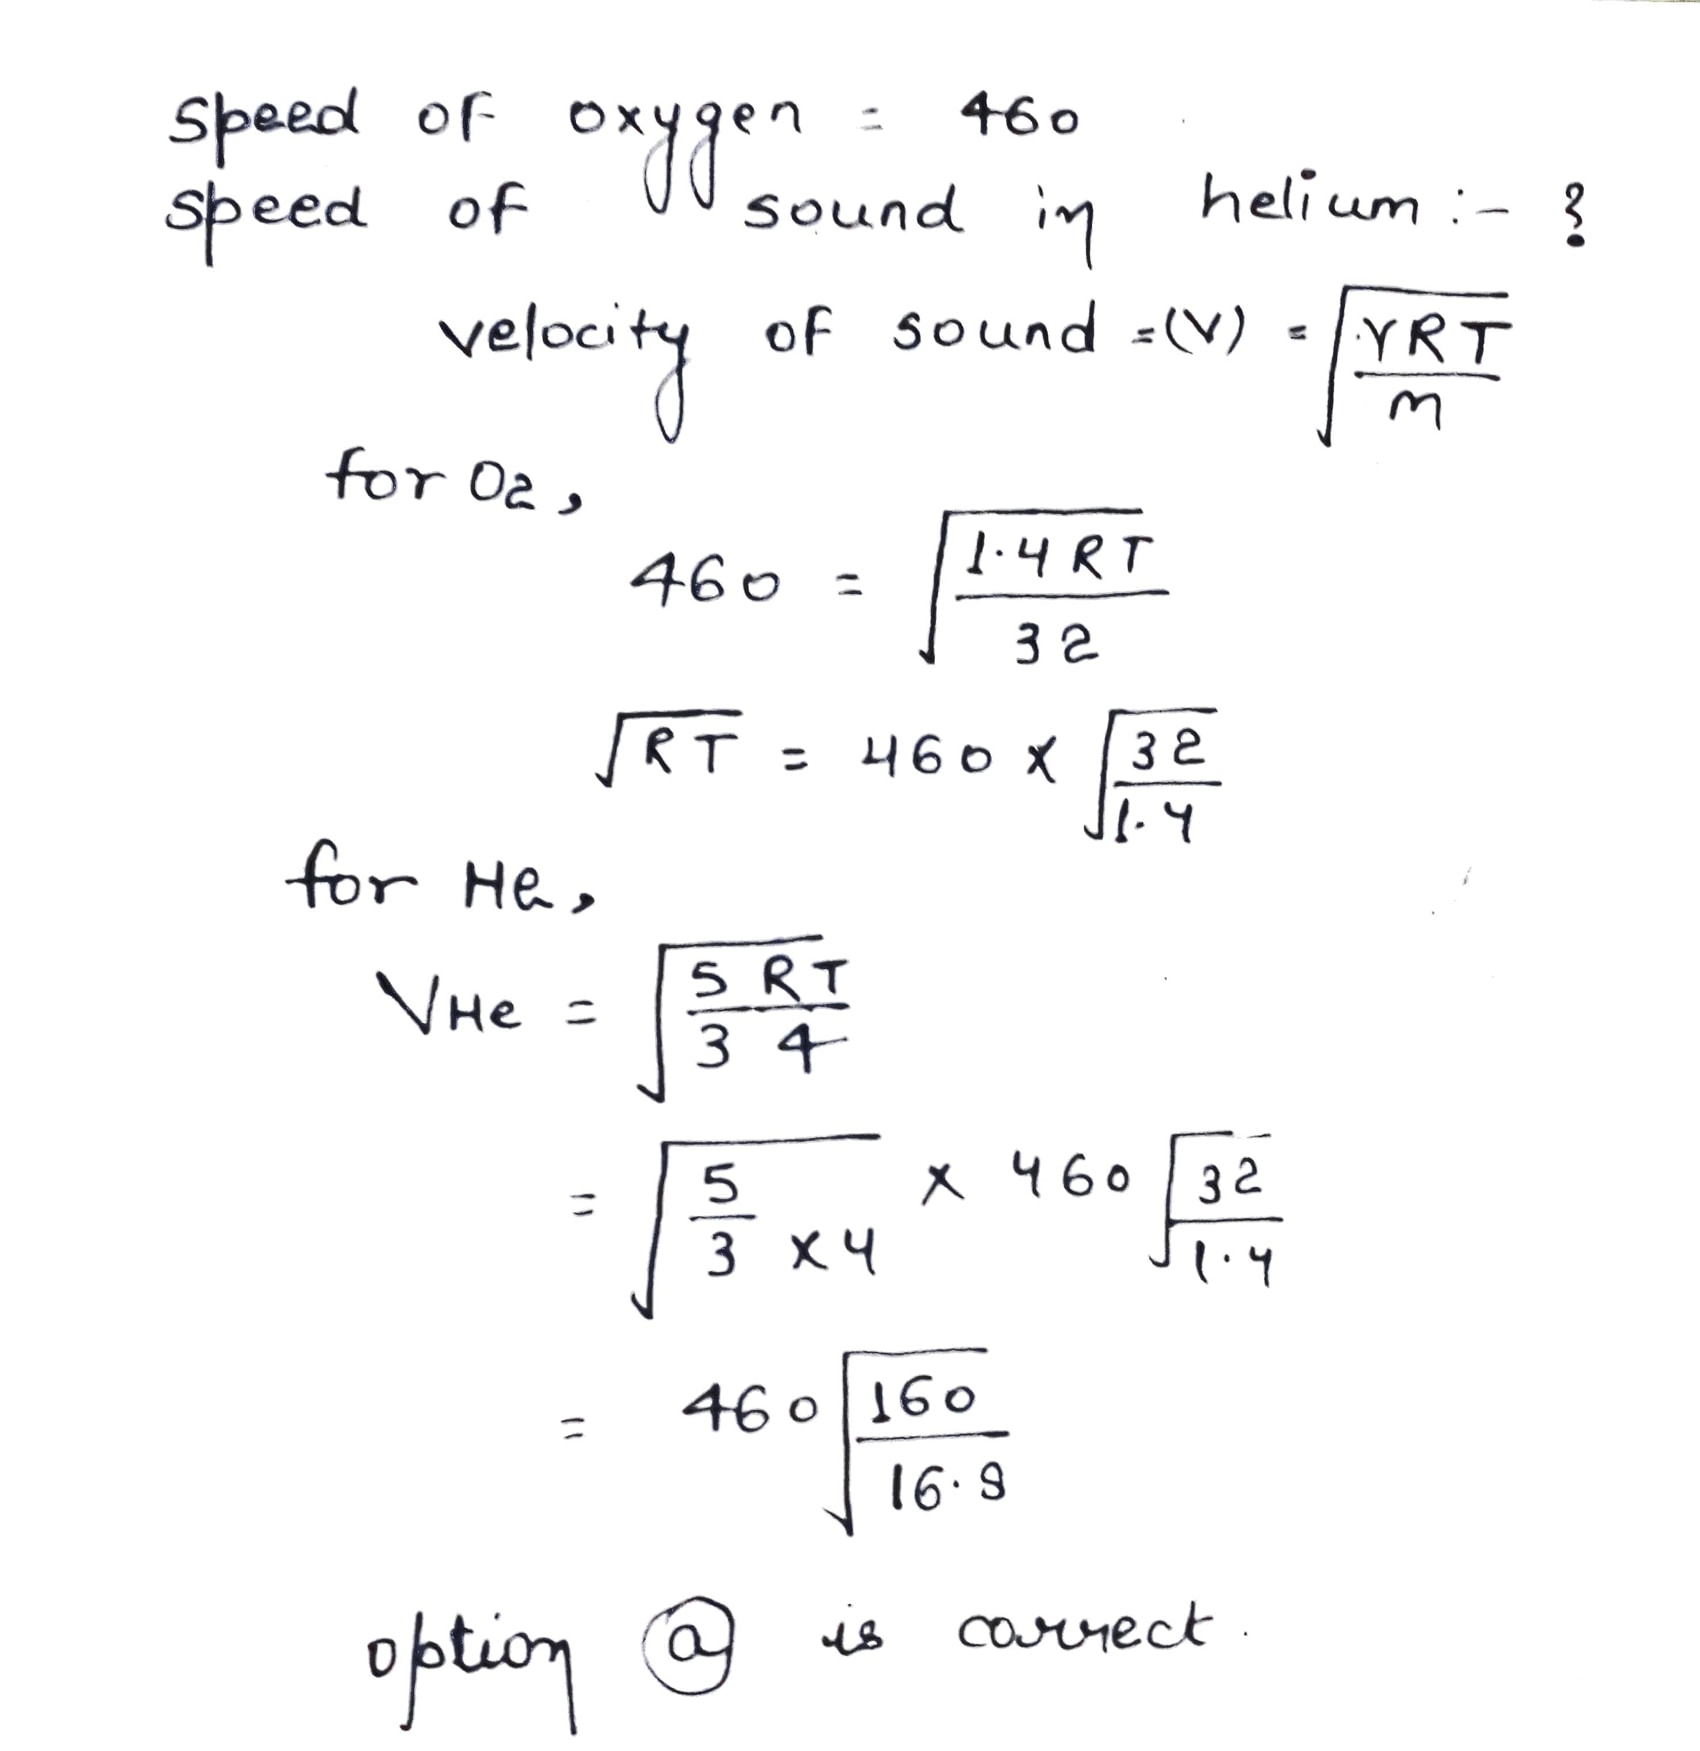 speed of oxygen = 460
speed of sound in helium :- ?
velocity of sound =(V) = √(γRT/m)
for O2,
460 = √(1.4RT/32)
√RT = 460 × √(32/1.4)
for He,
VHe = √(5 RT/3 4)
= √(5/3×4) × 460 √(32/1.4)
= 460 √(160/16.8)
option ⓐ is correct.